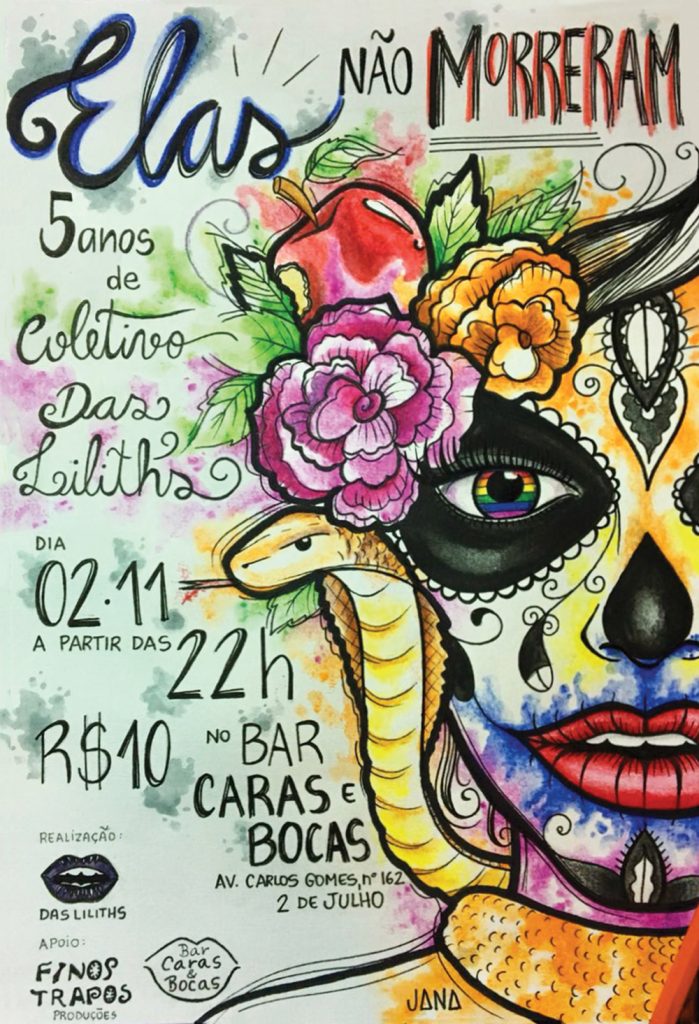 Elas NÃO MORRERAM
5 anos
de
Coletivo
Das
Liliths
DIA
02.11
A PARTIR DAS
22h
R$10
NO BAR
CARAS E
BOCAS
AV. CARLOS GOMES, nº 162
2 DE JULHO
REALIZAÇÃO:
DAS LILITHS
APOIO:
FINOS
TRAPOS
PRODUÇÕES
Bar
Caras
&
Bocas
JANA